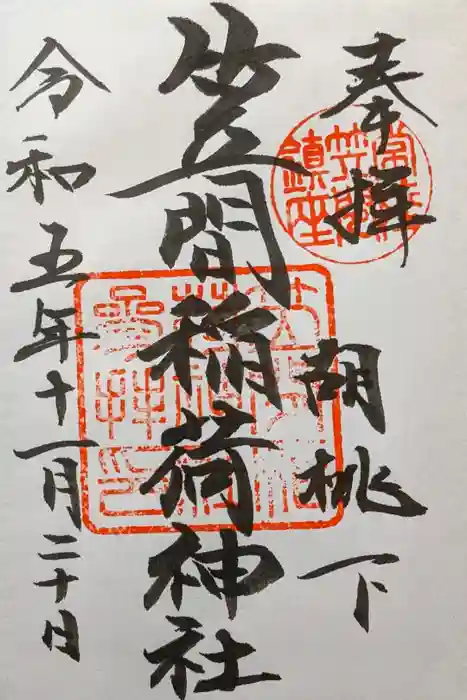 奉拝
胡桃下
常陸
笠間
鎮座
笠間稲荷神社
令和五年十一月二十日